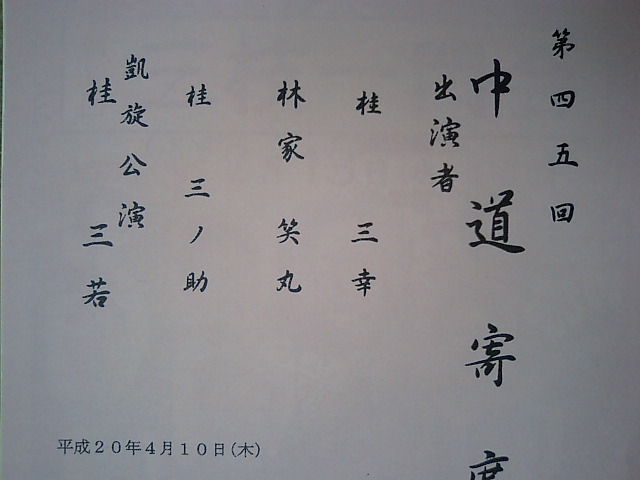 第四五回
中道寄席
出演者
桂 三幸
林家 笑丸
桂 三ノ助
凱旋公演
桂 三若
平成20年4月10日(木)